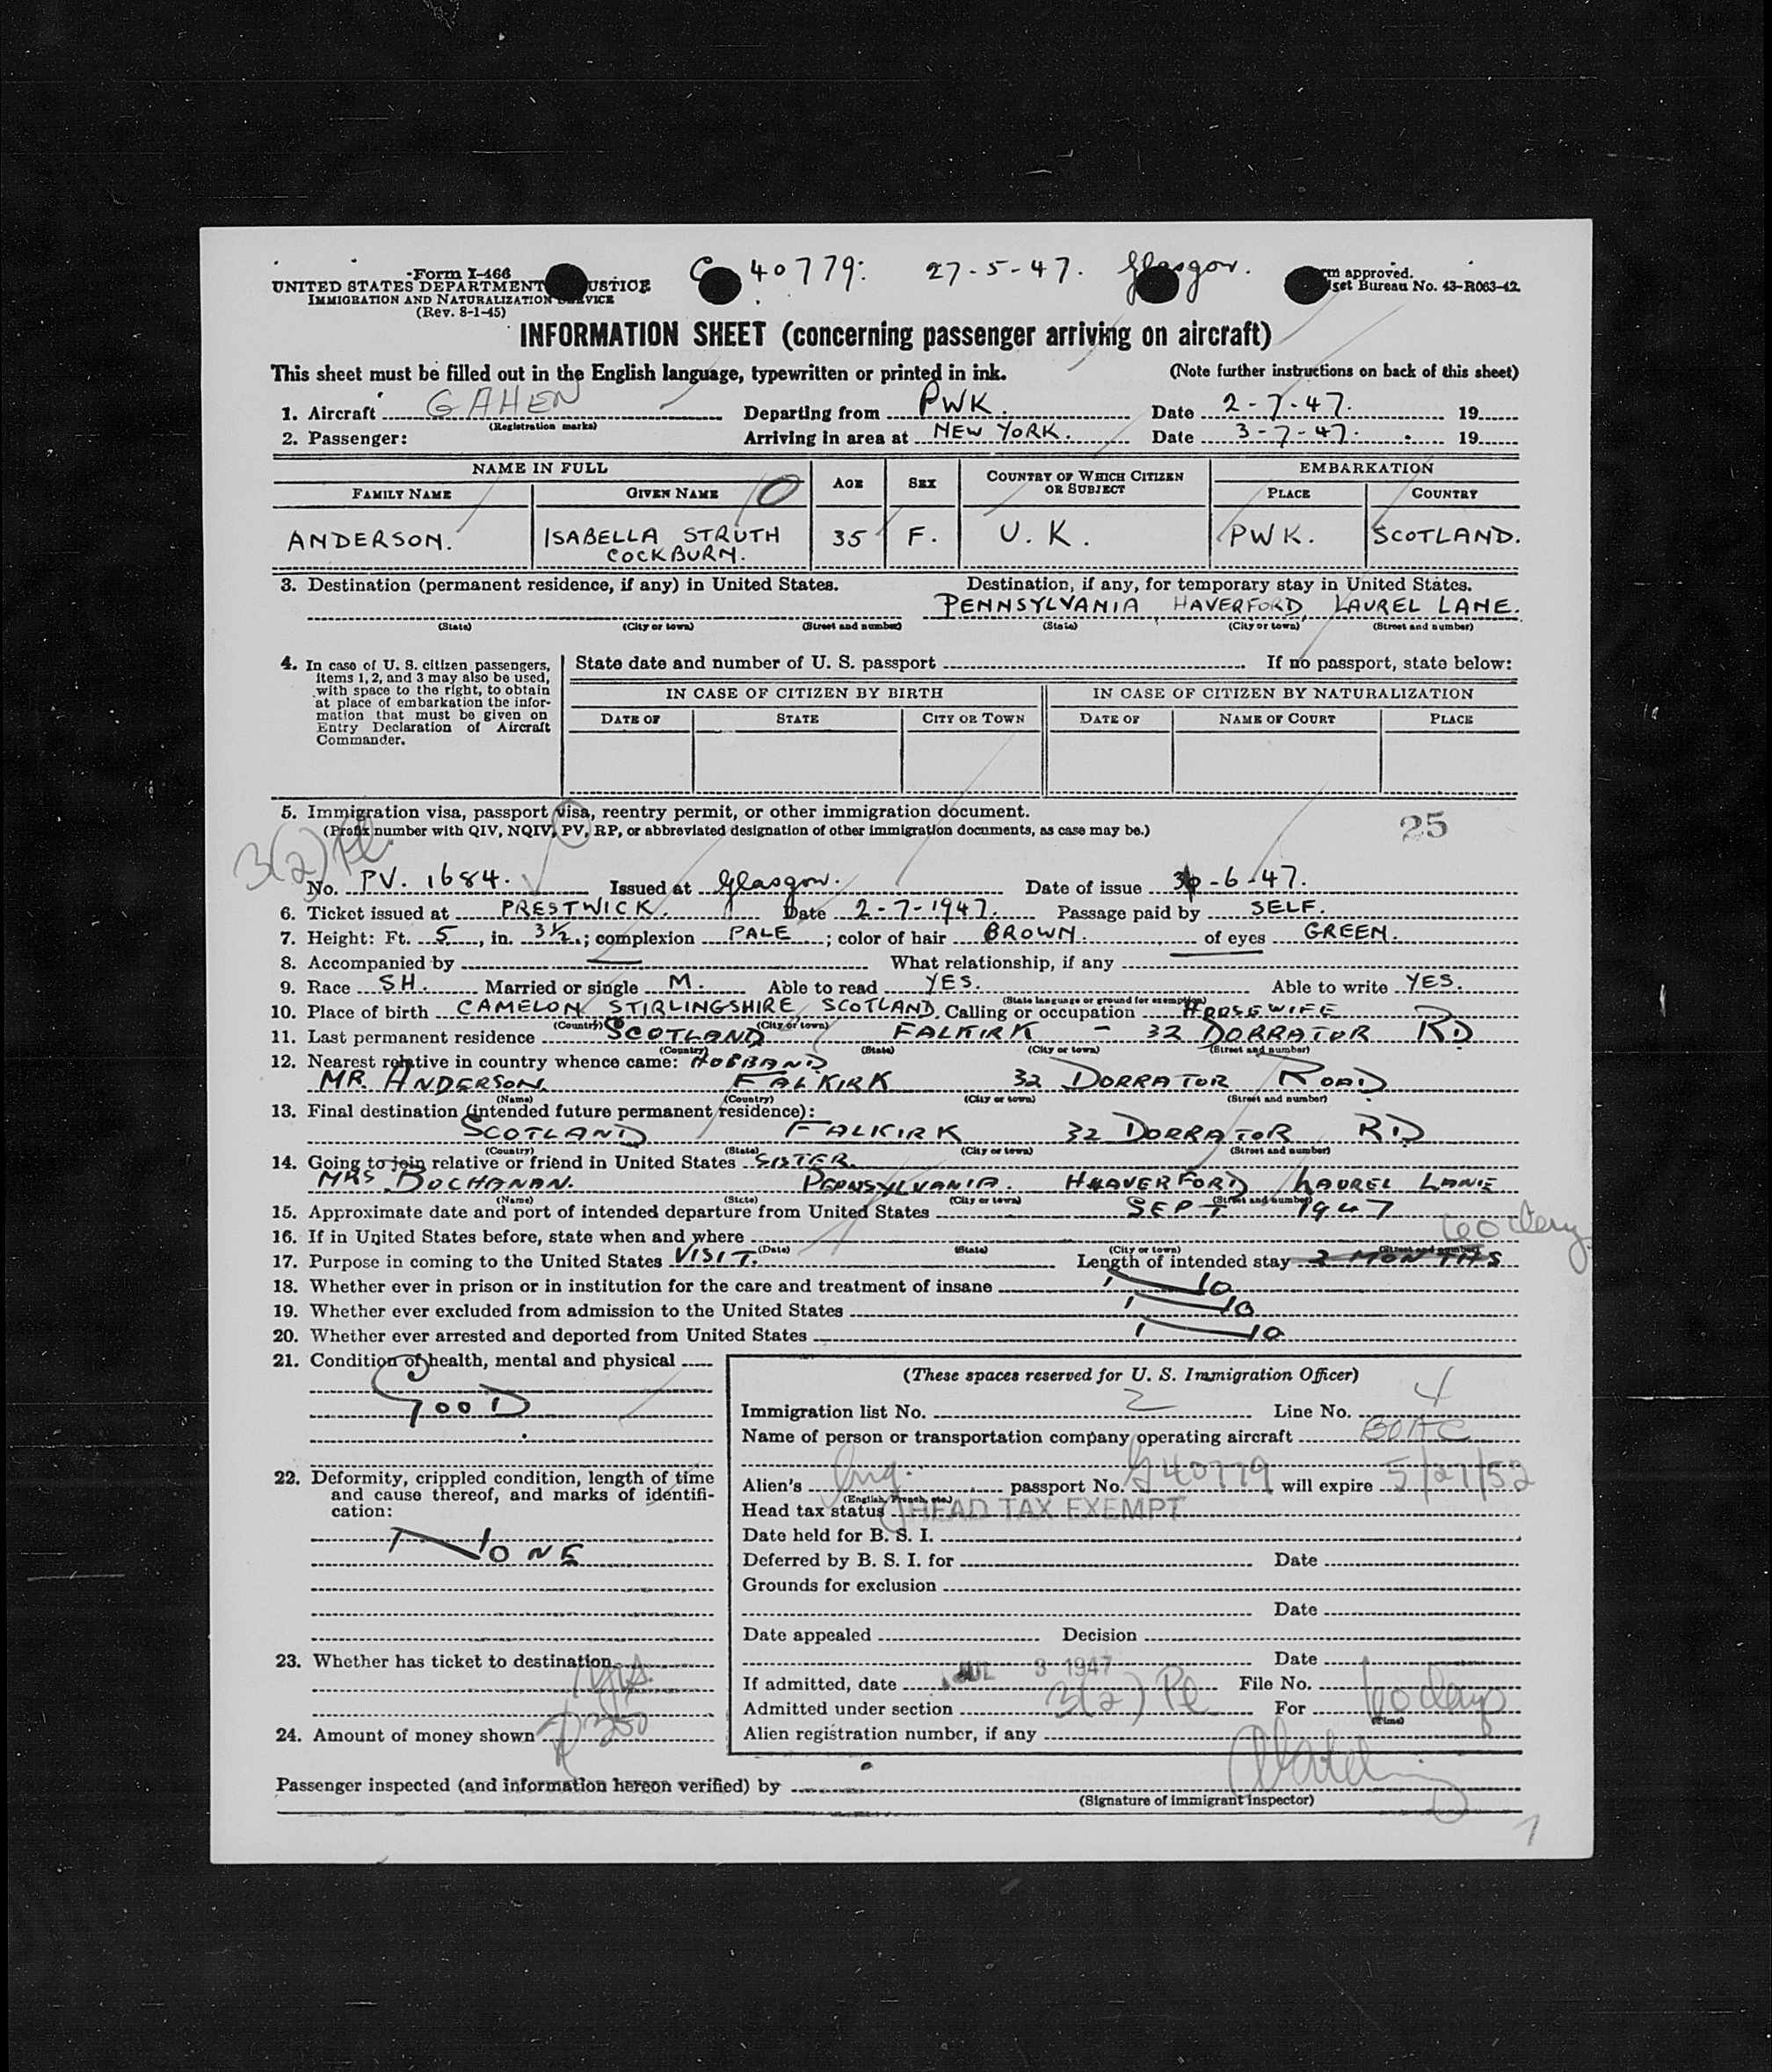 Form I-466
UNITED STATES DEPARTMENT USTICE
IMMIGRATION AND NATURALIZATION VICE
(Rev. 8-1-45)
40779. 27-5-47. Glasgow.
rm approved.
get Bureau No. 43-R063-42.
INFORMATION SHEET (concerning passenger arriving on aircraft)
This sheet must be filled out in the English language, typewritten or printed in ink. (Note further instructions on back of this sheet)
1. Aircraft GAHEN Departing from PWK. Date 2-7-47. 19
(Registration marks)
2. Passenger: Arriving in area at NEW YORK. Date 3-7-47. 19
NAME IN FULL AGE SEX COUNTRY OF WHICH CITIZEN OR SUBJECT EMBARKATION
FAMILY NAME GIVEN NAME PLACE COUNTRY
ANDERSON. ISABELLA STRUTH COCKBURN. 35 F. U.K. PWK. SCOTLAND.
3. Destination (permanent residence, if any) in United States. Destination, if any, for temporary stay in United States.
PENNSYLVANIA HAVERFORD LAUREL LANE.
(State) (City or town) (Street and number) (State) (City or town) (Street and number)
4. In case of U. S. citizen passengers, items 1, 2, and 3 may also be used, with space to the right, to obtain at place of embarkation the information that must be given on Entry Declaration of Aircraft Commander.
State date and number of U. S. passport If no passport, state below:
IN CASE OF CITIZEN BY BIRTH IN CASE OF CITIZEN BY NATURALIZATION
DATE OF STATE CITY OR TOWN DATE OF NAME OF COURT PLACE
5. Immigration visa, passport visa, reentry permit, or other immigration document.
(Prefix number with QIV, NQIV, PV, RP, or abbreviated designation of other immigration documents, as case may be.) 25
3(2) Pl
No. PV. 1684. Issued at Glasgow. Date of issue 30-6-47.
6. Ticket issued at PRESTWICK. Date 2-7-1947. Passage paid by SELF.
7. Height: Ft. 5, in. 3½.; complexion PALE; color of hair BROWN. of eyes GREEN.
8. Accompanied by — What relationship, if any
9. Race SH. Married or single M. Able to read YES. Able to write YES.
(State language or ground for exemption)
10. Place of birth CAMELON STIRLINGSHIRE SCOTLAND. Calling or occupation HOUSEWIFE
(Country) (City or town)
11. Last permanent residence SCOTLAND FALKIRK - 32 DORRATOR RD
(Country) (State) (City or town) (Street and number)
12. Nearest relative in country whence came: HUSBAND
MR. ANDERSON. FALKIRK 32 DORRATOR ROAD
(Name) (Country) (City or town) (Street and number)
13. Final destination (intended future permanent residence):
SCOTLAND FALKIRK 32 DORRATOR RD
(Country) (State) (City or town) (Street and number)
14. Going to join relative or friend in United States SISTER.
MRS BUCHANAN. PENNSYLVANIA. HAVERFORD LAUREL LANE
(Name) (State) (City or town) (Street and number)
15. Approximate date and port of intended departure from United States SEPT 1947
16. If in United States before, state when and where
(Date) (State) (City or town) (Street and number)
60 days
17. Purpose in coming to the United States VISIT. Length of intended stay 2 MONTHS
18. Whether ever in prison or in institution for the care and treatment of insane NO
19. Whether ever excluded from admission to the United States NO
20. Whether ever arrested and deported from United States NO
21. Condition of health, mental and physical
GOOD
22. Deformity, crippled condition, length of time and cause thereof, and marks of identification:
NONE
23. Whether has ticket to destination
yes.
24. Amount of money shown 350
(These spaces reserved for U. S. Immigration Officer)
Immigration list No. 2 Line No. 4
Name of person or transportation company operating aircraft BOAC
Alien's Eng. passport No. 40779 will expire 5/27/52
(English, French, etc.)
Head tax status HEAD TAX EXEMPT
Date held for B. S. I.
Deferred by B. S. I. for Date
Grounds for exclusion
Date
Date appealed Decision
Date
If admitted, date JUL 3 1947 File No.
Admitted under section 3(2) Pl For 60 days
(Time)
Alien registration number, if any
Passenger inspected (and information hereon verified) by
(Signature of immigrant inspector)
1